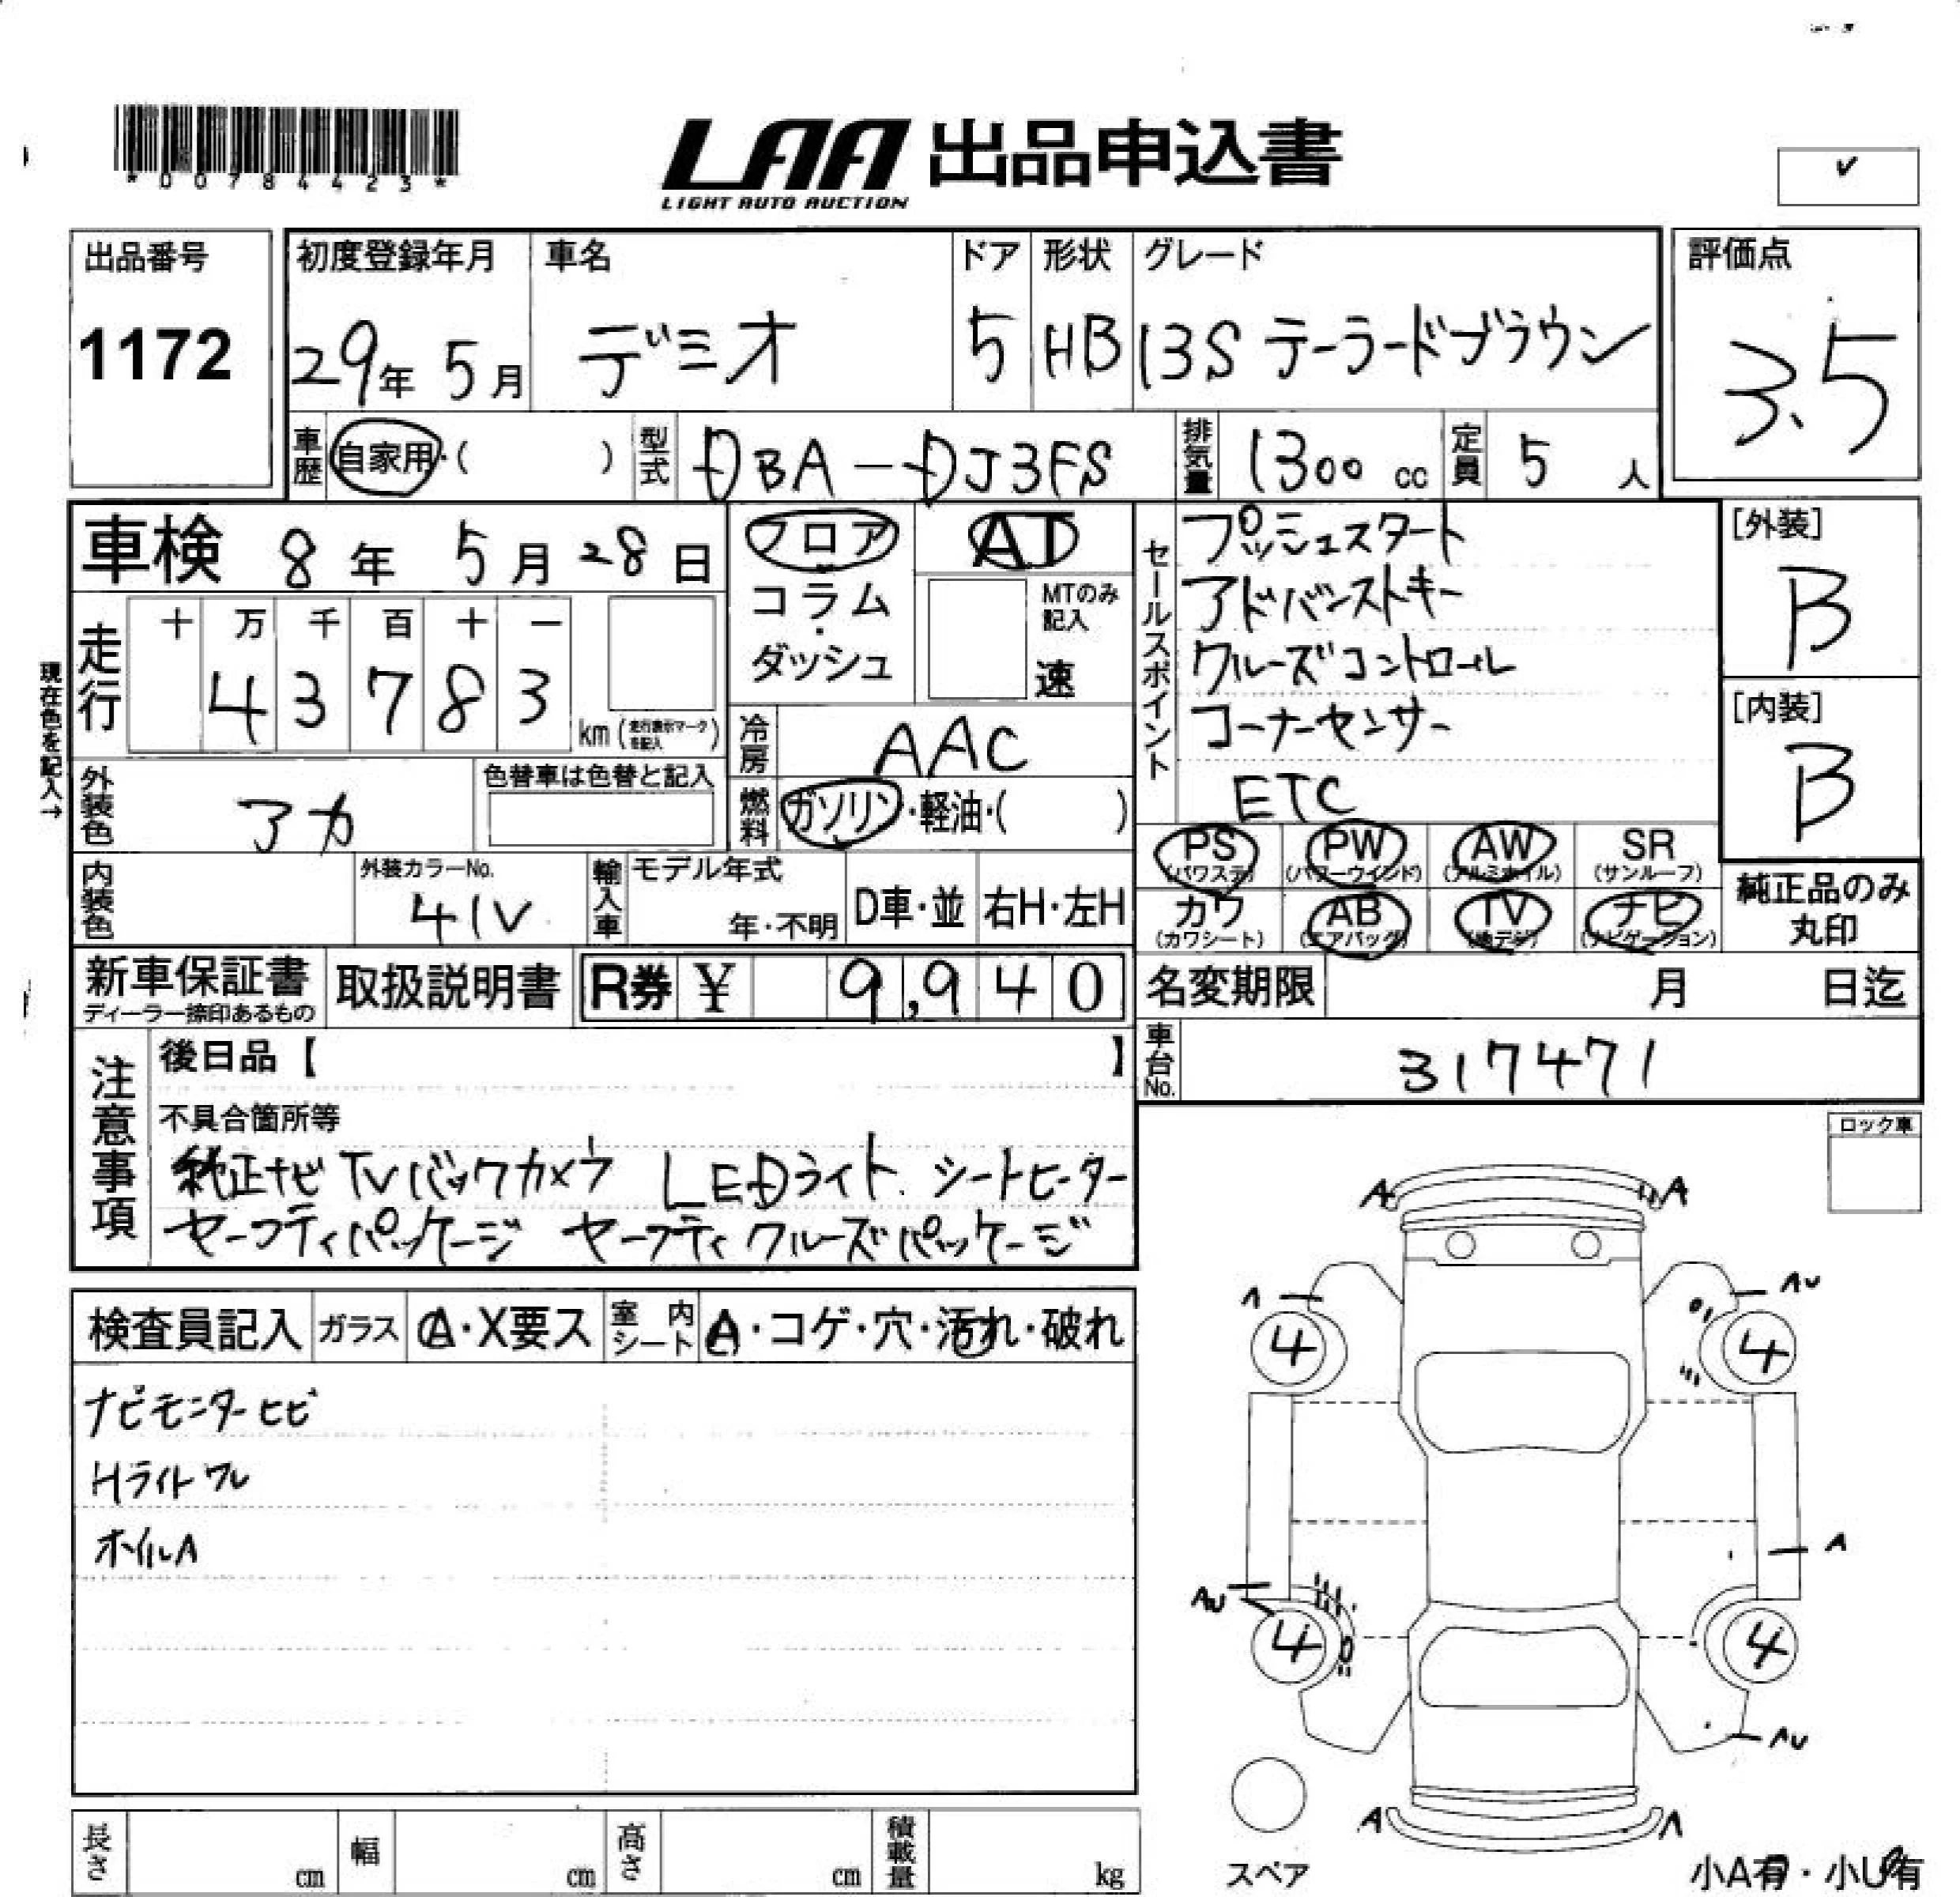 *00784423*
LAA 出品申込書
LIGHT AUTO AUCTION
✓
出品番号
1172
初度登録年月
29年 5月
車名
デミオ
ドア
5
形状
HB
グレード
13S テーラードブラウン
評価点
3.5
車歴 自家用・( )
型式 DBA-DJ3FS
排気量 1300 cc
定員 5 人
車検 8年 5月 28日
現在色を記入→
走行
十 万 千 百 十 一
4 3 7 8 3
km (走行表示マークを記入)
フロア
コラム
・
ダッシュ
AT
MTのみ記入
速
セールスポイント
プッシュスタート
アドバンストキー
クルーズコントロール
コーナーセンサー
ETC
[外装]
B
[内装]
B
外装色
アカ
色替車は色替と記入
冷房 AAC
燃料 ガソリン・軽油・( )
PS (パワステ)
PW (パワーウインド)
AW (アルミホイル)
SR (サンルーフ)
カワ (カワシート)
AB (エアバッグ)
TV (地デジ)
ナビ (ナビゲーション)
純正品のみ
丸印
内装色
外装カラーNo.
41V
輸入車
モデル年式
年・不明
D車・並
右H・左H
新車保証書
ディーラー捺印あるもの
取扱説明書
R券 ¥ 9,940
名変期限 月 日迄
車台No. 317471
注意事項
後日品【 】
不具合箇所等
純正ナビ TV バックカメラ LEDライト シートヒーター
セーフティパッケージ セーフティクルーズパッケージ
ロック車
検査員記入
ガラス
A・X要ス
室内シート
A・コゲ・穴・汚れ・破れ
ナビモニターヒビ
Hライトワレ
ホイルA
A A
A AU
4 4
A
AU
4 4
AU
A A
スペア
小A有・小U有
長さ cm
幅 cm
高さ cm
積載量 kg